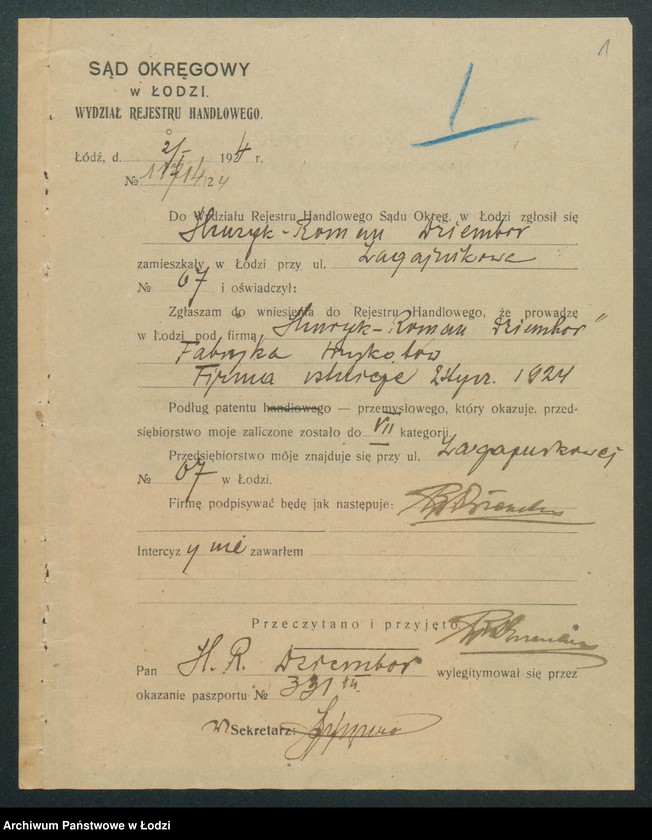 1
SĄD OKRĘGOWY
w ŁODZI.
WYDZIAŁ REJESTRU HANDLOWEGO.
Łódź, d. 2/I 1924 r.
№ /24
Do Wydziału Rejestru Handlowego Sądu Okręg. w Łodzi zgłosił się
Henryk-Roman Dziembor
zamieszkały w Łodzi przy ul. Zagajnikowa
№ 67 i oświadczył:
Zgłaszam do wniesienia do Rejestru Handlowego, że prowadzę
w Łodzi pod firmą „Henryk-Roman Dziembor”
Fabryka trykotów
Firma istnieje 1924
Podług patentu handlowego — przemysłowego, który okazuje, przed-
siębiorstwo moje zaliczone zostało do VII kategorji
Przedsiębiorstwo moje znajduje się przy ul. Zagajnikowej
№ 67 w Łodzi.
Firmę podpisywać będę jak następuje:
Intercyzy nie zawarłem
Przeczytano i przyjęto
Pan H. R. Dziembor wylegitymował się przez
okazanie paszportu № 331
Sekretarz:
Archiwum Państwowe w Łodzi